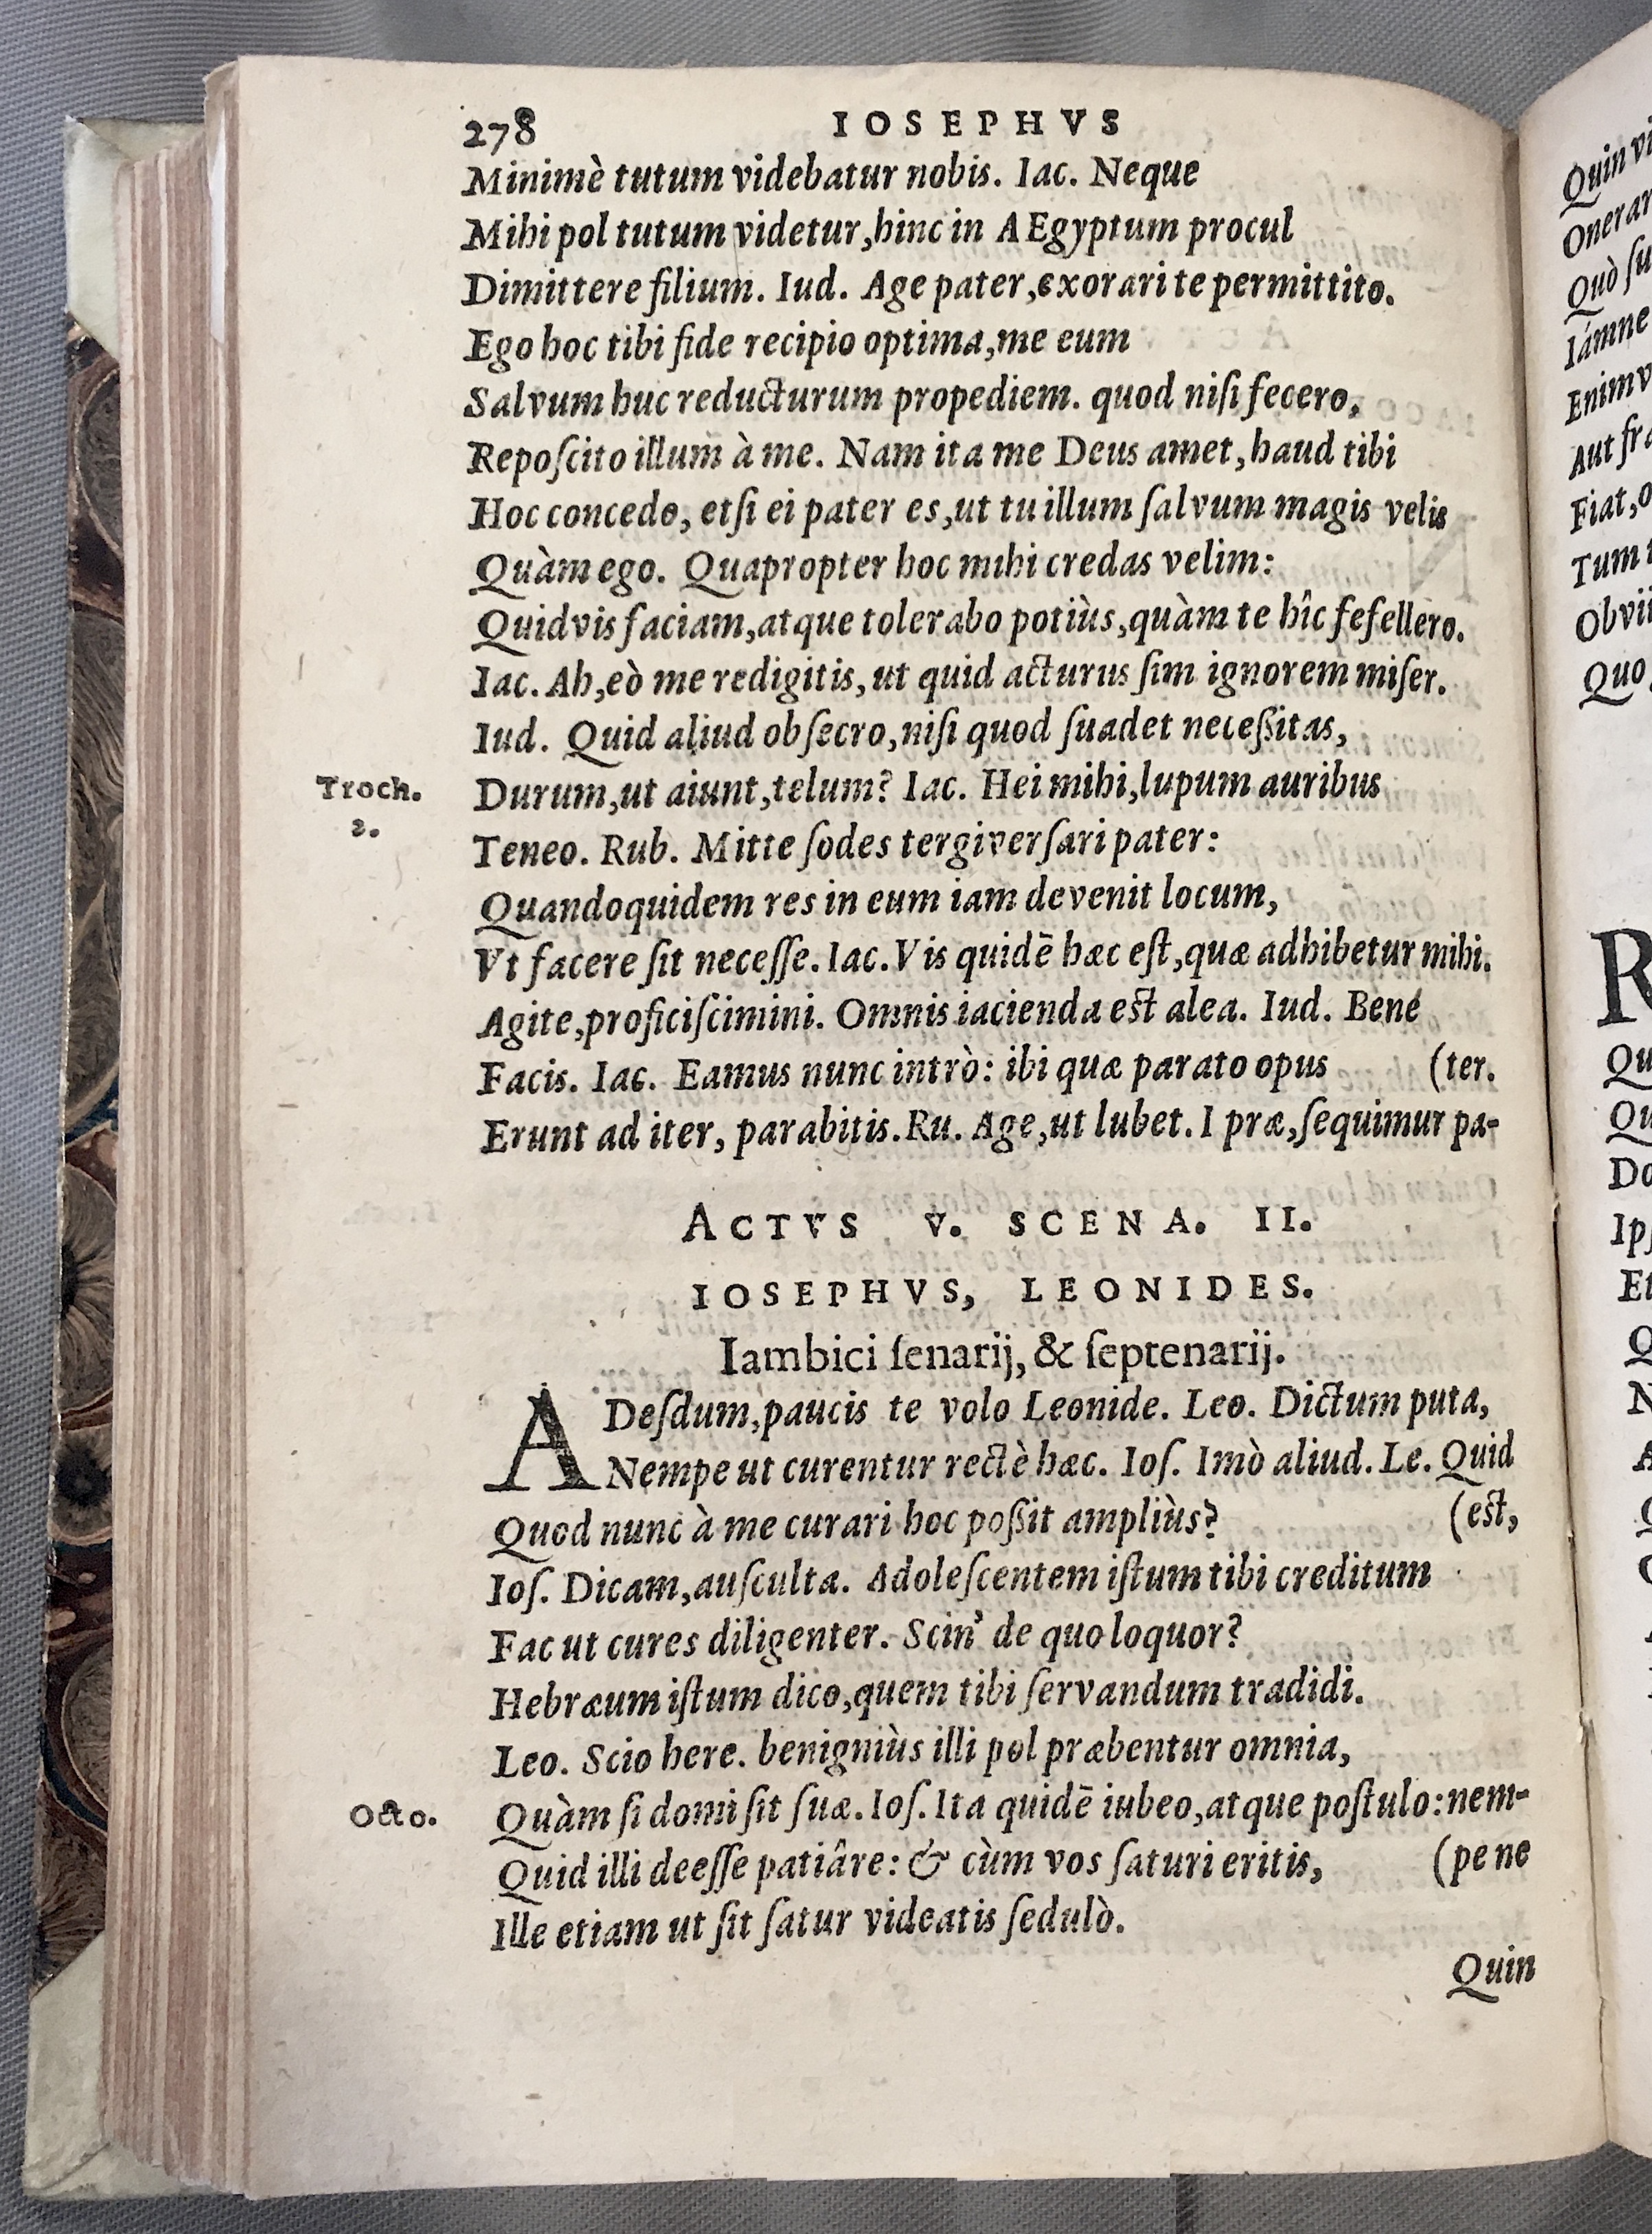 278 IOSEPHVS
Minimè tutum videbatur nobis. Iac. Neque
Mihi pol tutum videtur, hinc in AEgyptum procul
Dimittere filium. Iud. Age pater, exorari te permittito.
Ego hoc tibi fide recipio optima, me eum
Salvum huc reducturum propediem. quod niſi fecero,
Repoſcito illum à me. Nam ita me Deus amet, haud tibi
Hoc concedo, etſi ei pater es, ut tu illum ſalvum magis velis
Quàm ego. Quapropter hoc mihi credas velim:
Quidvis faciam, atque tolerabo potiùs, quàm te hîc fefellero.
Iac. Ah, eò me redigitis, ut quid acturus ſim ignorem miſer.
Iud. Quid aliud obſecro, niſi quod ſuadet neceßitas,
Troch. 2.
Durum, ut aiunt, telum? Iac. Hei mihi, lupum auribus
Teneo. Rub. Mitte ſodes tergiverſari pater:
Quandoquidem res in eum iam devenit locum,
Vt facere ſit neceſſe. Iac. Vis quidē hæc eſt, quæ adhibetur mihi.
Agite, proficiſcimini. Omnis iacienda eſt alea. Iud. Bene
Facis. Iac. Eamus nunc intrò: ibi quæ parato opus (ter.
Erunt ad iter, parabitis. Ru. Age, ut lubet. I præ, ſequimur pa-
ACTVS V. SCENA. II.
IOSEPHVS, LEONIDES.
Iambici ſenarij, & ſeptenarij.
ADeſdum, paucis te volo Leonide. Leo. Dictum puta,
Nempe ut curentur rectè hæc. Ioſ. Imò aliud. Le. Quid
Quod nunc à me curari hoc poßit ampliùs? (eſt,
Ioſ. Dicam, auſculta. Adoleſcentem iſtum tibi creditum
Fac ut cures diligenter. Scin' de quo loquor?
Hebræum iſtum dico, quem tibi ſervandum tradidi.
Leo. Scio here. benigniùs illi pol præbentur omnia,
Octo.
Quàm ſi domi ſit ſuæ. Ioſ. Ita quidē iubeo, atque poſtulo: nem-
Quid illi deeſſe patiâre: & cùm vos ſaturi eritis, (pe ne
Ille etiam ut ſit ſatur videatis ſedulò.
Quin
Quin
Onerar
Quò ſu
Iámne
Enimv
Aut fra
Fiat, o
Tum
Obvii
Quo
R
Qu
Qu
Do
Ipſ
Et